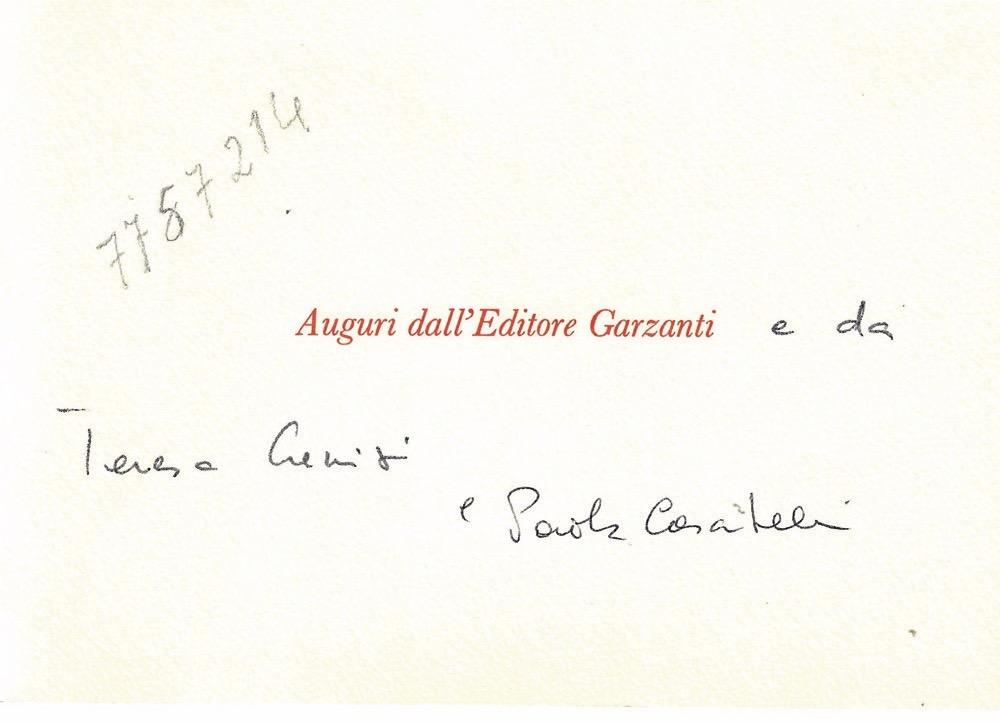 7757214
Auguri dall'Editore Garzanti e da
Teresa Cremisi
e Paola Casatelli